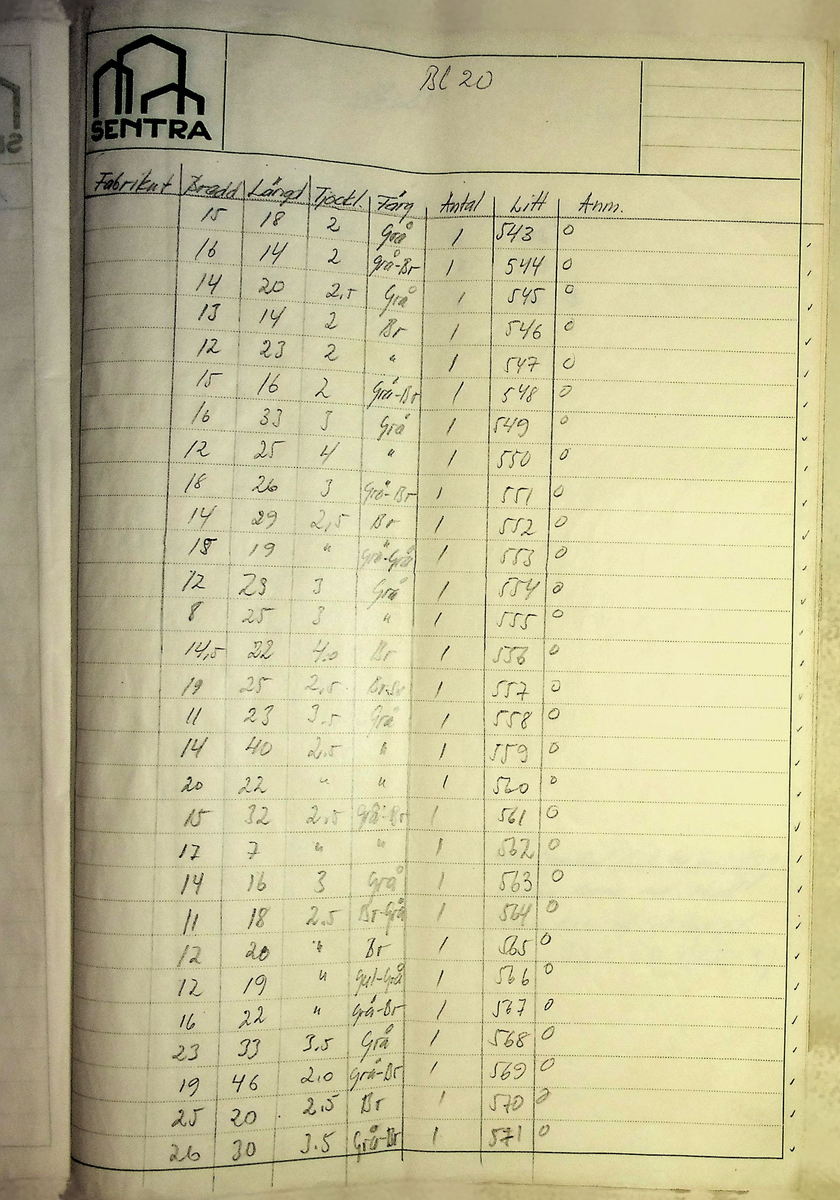 SENTRA
Bl 20
Fabrikat Bredd Längd Tjockl. Färg Antal Litt Anm.
15 18 2 Grå 1 543 0
16 14 2 grå-Br 1 544 0
14 20 2,5 Grå 1 545 0
13 14 2 Br 1 546 0
12 23 2 " 1 547 0
15 16 2 Grå-Br 1 548 0
16 33 3 Grå 1 549 0
12 25 4 " 1 550 0
18 26 3 Grå-Br 1 551 0
14 29 2,5 Br 1 552 0
18 19 " Grå-Grå 1 553 0
12 23 3 Grå 1 554 0
8 25 3 " 1 555 0
14,5 22 4,0 Br 1 556 0
19 25 2,5 1 557 0
11 23 3.5 Grå 1 558 0
14 40 2.5 " 1 559 0
20 22 " " 1 560 0
15 32 2.5 Grå-Br 1 561 0
17 7 " " 1 562 0
14 16 3 Grå 1 563 0
11 18 2.5 Br-Grå 1 564 0
12 20 " Br 1 565 0
12 19 " Gul-Grå 1 566 0
16 22 " Grå-Br 1 567 0
23 33 3.5 Grå 1 568 0
19 46 2.0 Grå-Br 1 569 0
25 20 2.5 Br 1 570 0
26 30 3.5 Grå-Br 1 571 0